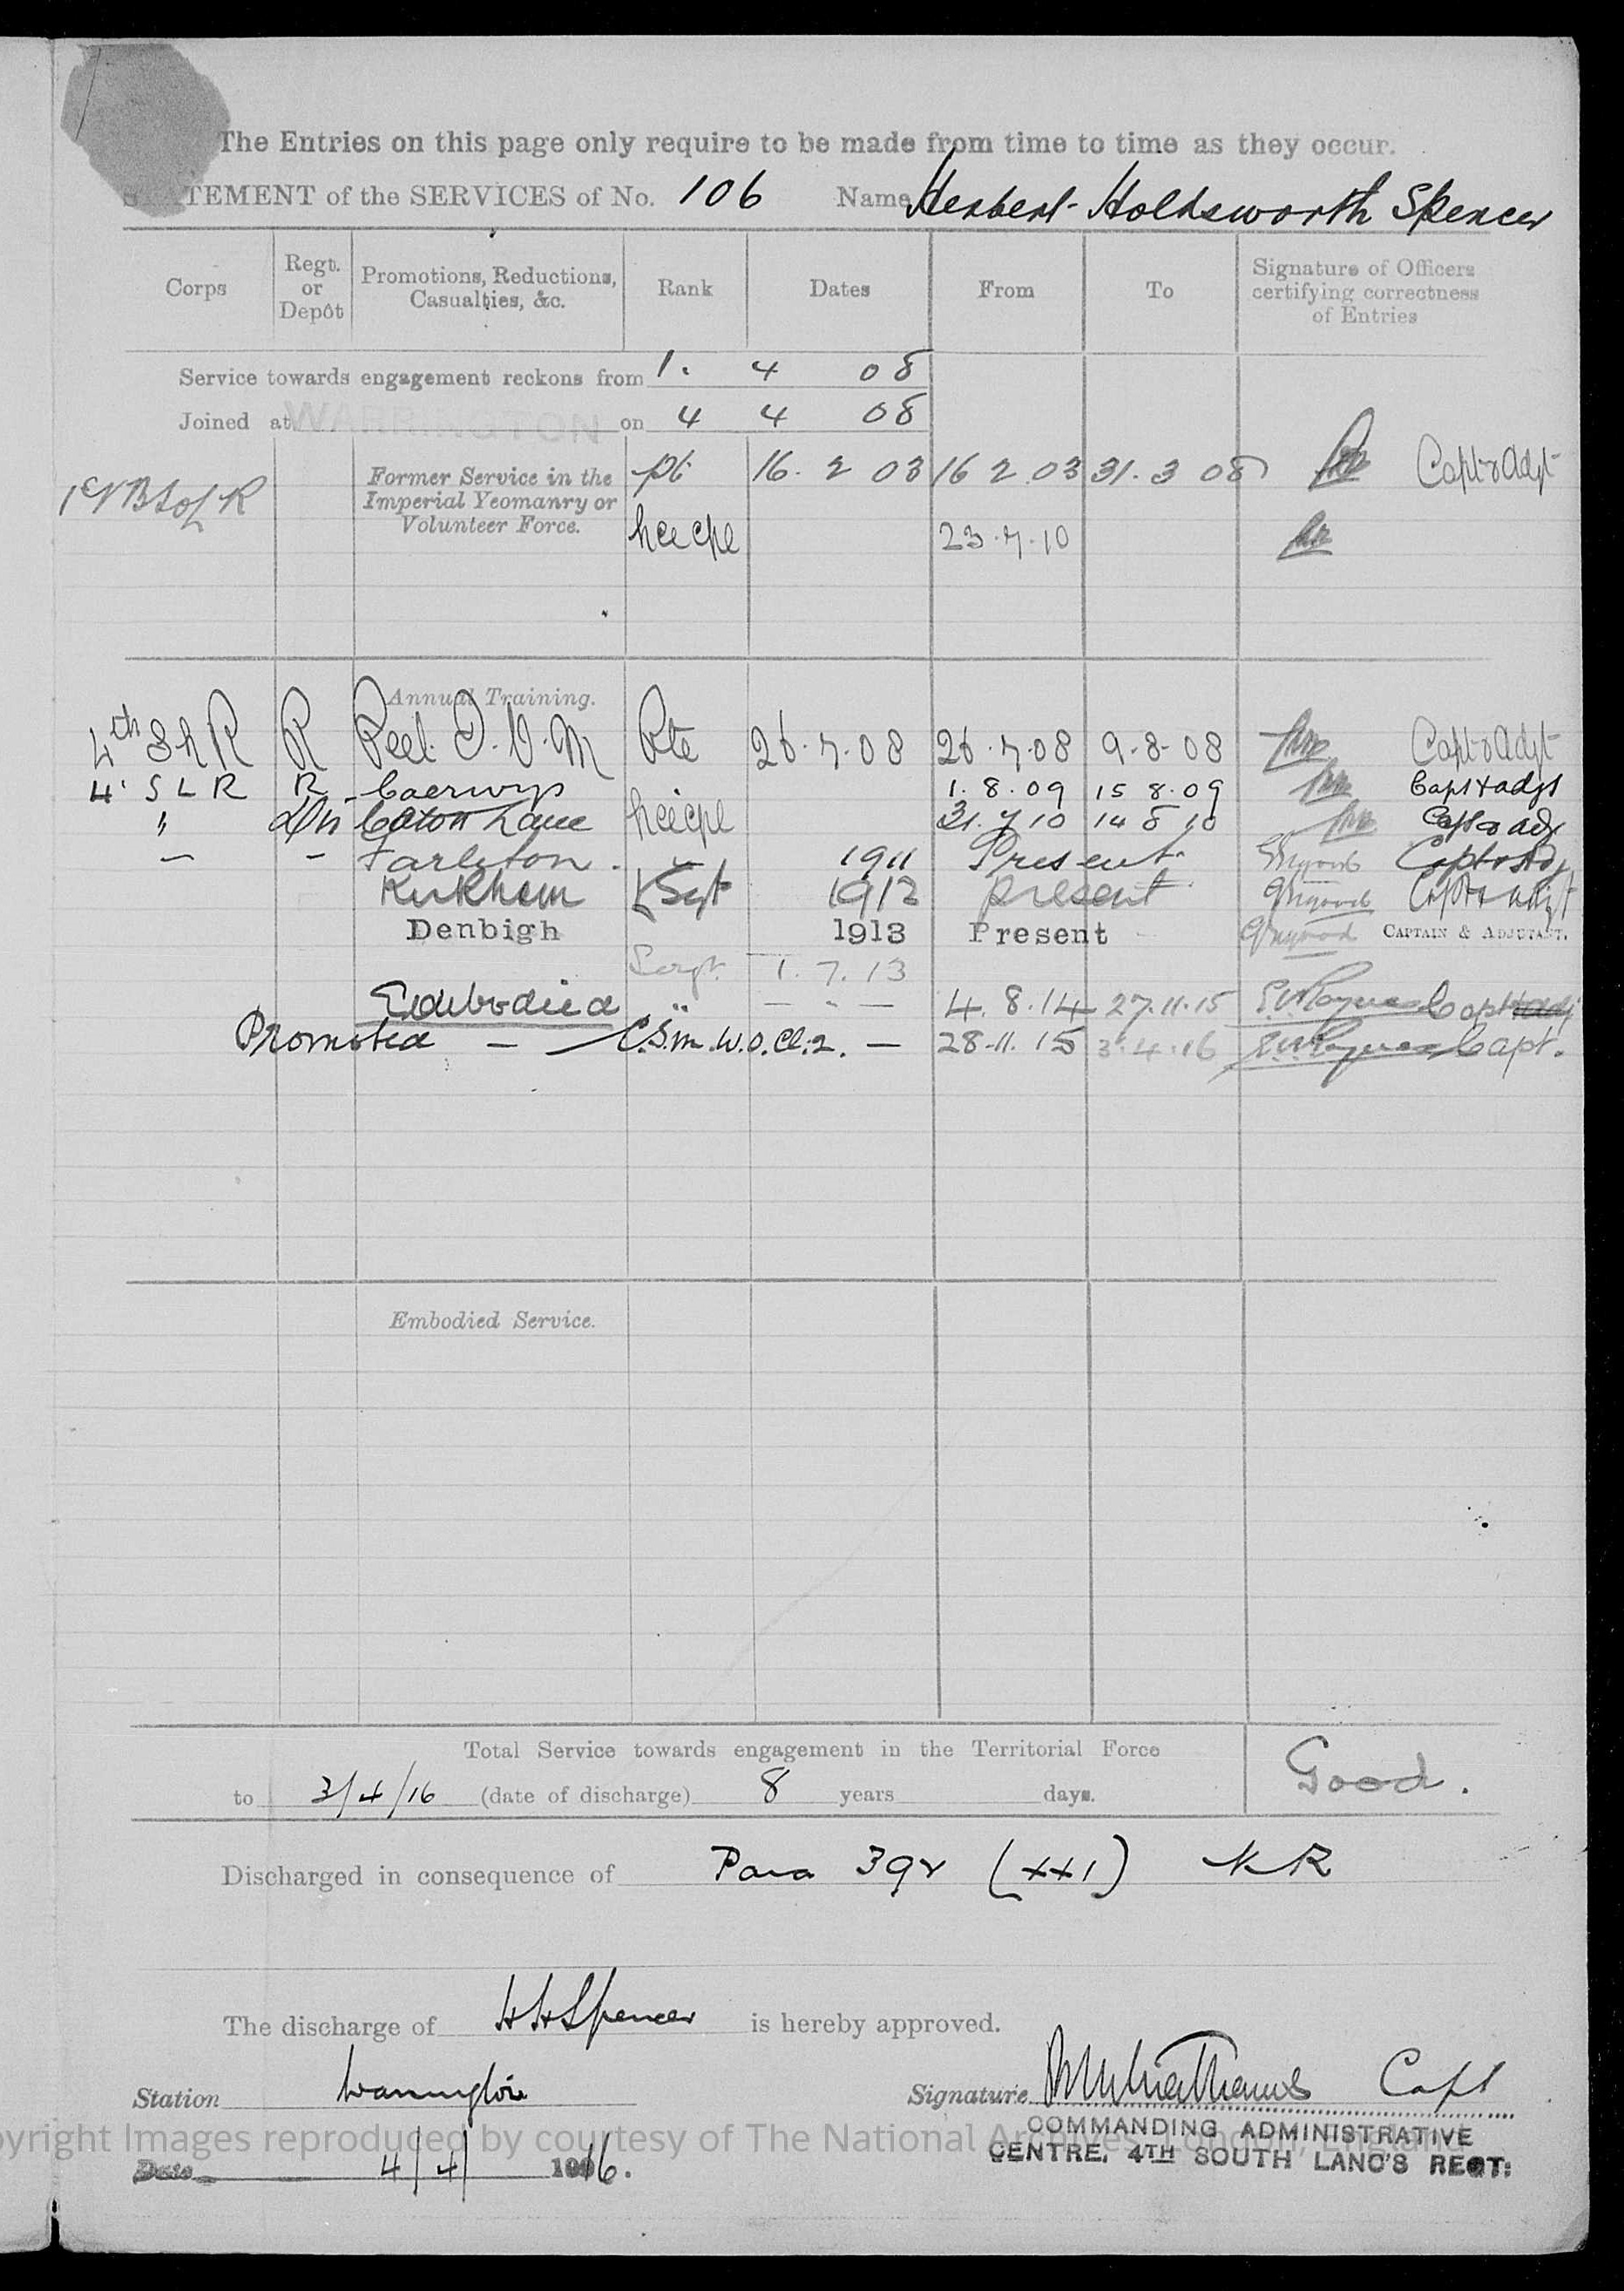 The Entries on this page only require to be made from time to time as they occur.
STATEMENT of the SERVICES of No. 106 Name Herbert Holdsworth Spencer
Corps Regt. or Depôt Promotions, Reductions, Casualties, &c. Rank Dates From To Signature of Officers certifying correctness of Entries
Service towards engagement reckons from 1. 4 08
Joined at WARRINGTON on 4 4 08
Former Service in the Imperial Yeomanry or Volunteer Force. Pt 16. 2 03 16 2 03 31. 3 08 Capt & Adjt
23.7.10
Annual Training.
4th S L R R Peel I. O. M Pte 26.7.08 26.7.08 9.8.08 Capt & Adjt
4 S L R R Caerwys 1.8.09 15 8.09 Capt & adjt
" Dn Caton Lane 31.7 10 14 8 10 Capt & adj
— - Tarleton. 1911 Present Capt & Adj
Kirkham L/Sgt 1912 present Capt & Adjt
Denbigh 1913 Present CAPTAIN & ADJUTANT.
Sergt. 1. 7. 13
Embodied " — - — 4. 8. 14 27.11.15 Capt & adj
Promoted — C.S.M. W.O. Cl. 2. — 28.11.15 3.4.16 Capt.
Embodied Service.
Total Service towards engagement in the Territorial Force
to 3/4/16 (date of discharge) 8 years days. Good.
Discharged in consequence of Para 392 (xxi) K R
The discharge of H H Spencer is hereby approved.
Station Warrington Signature Capt
COMMANDING ADMINISTRATIVE
CENTRE, 4TH SOUTH LANC'S REGT:
Date 4/4/ 1916.
opyright Images reproduced by courtesy of The National Archives, London, England